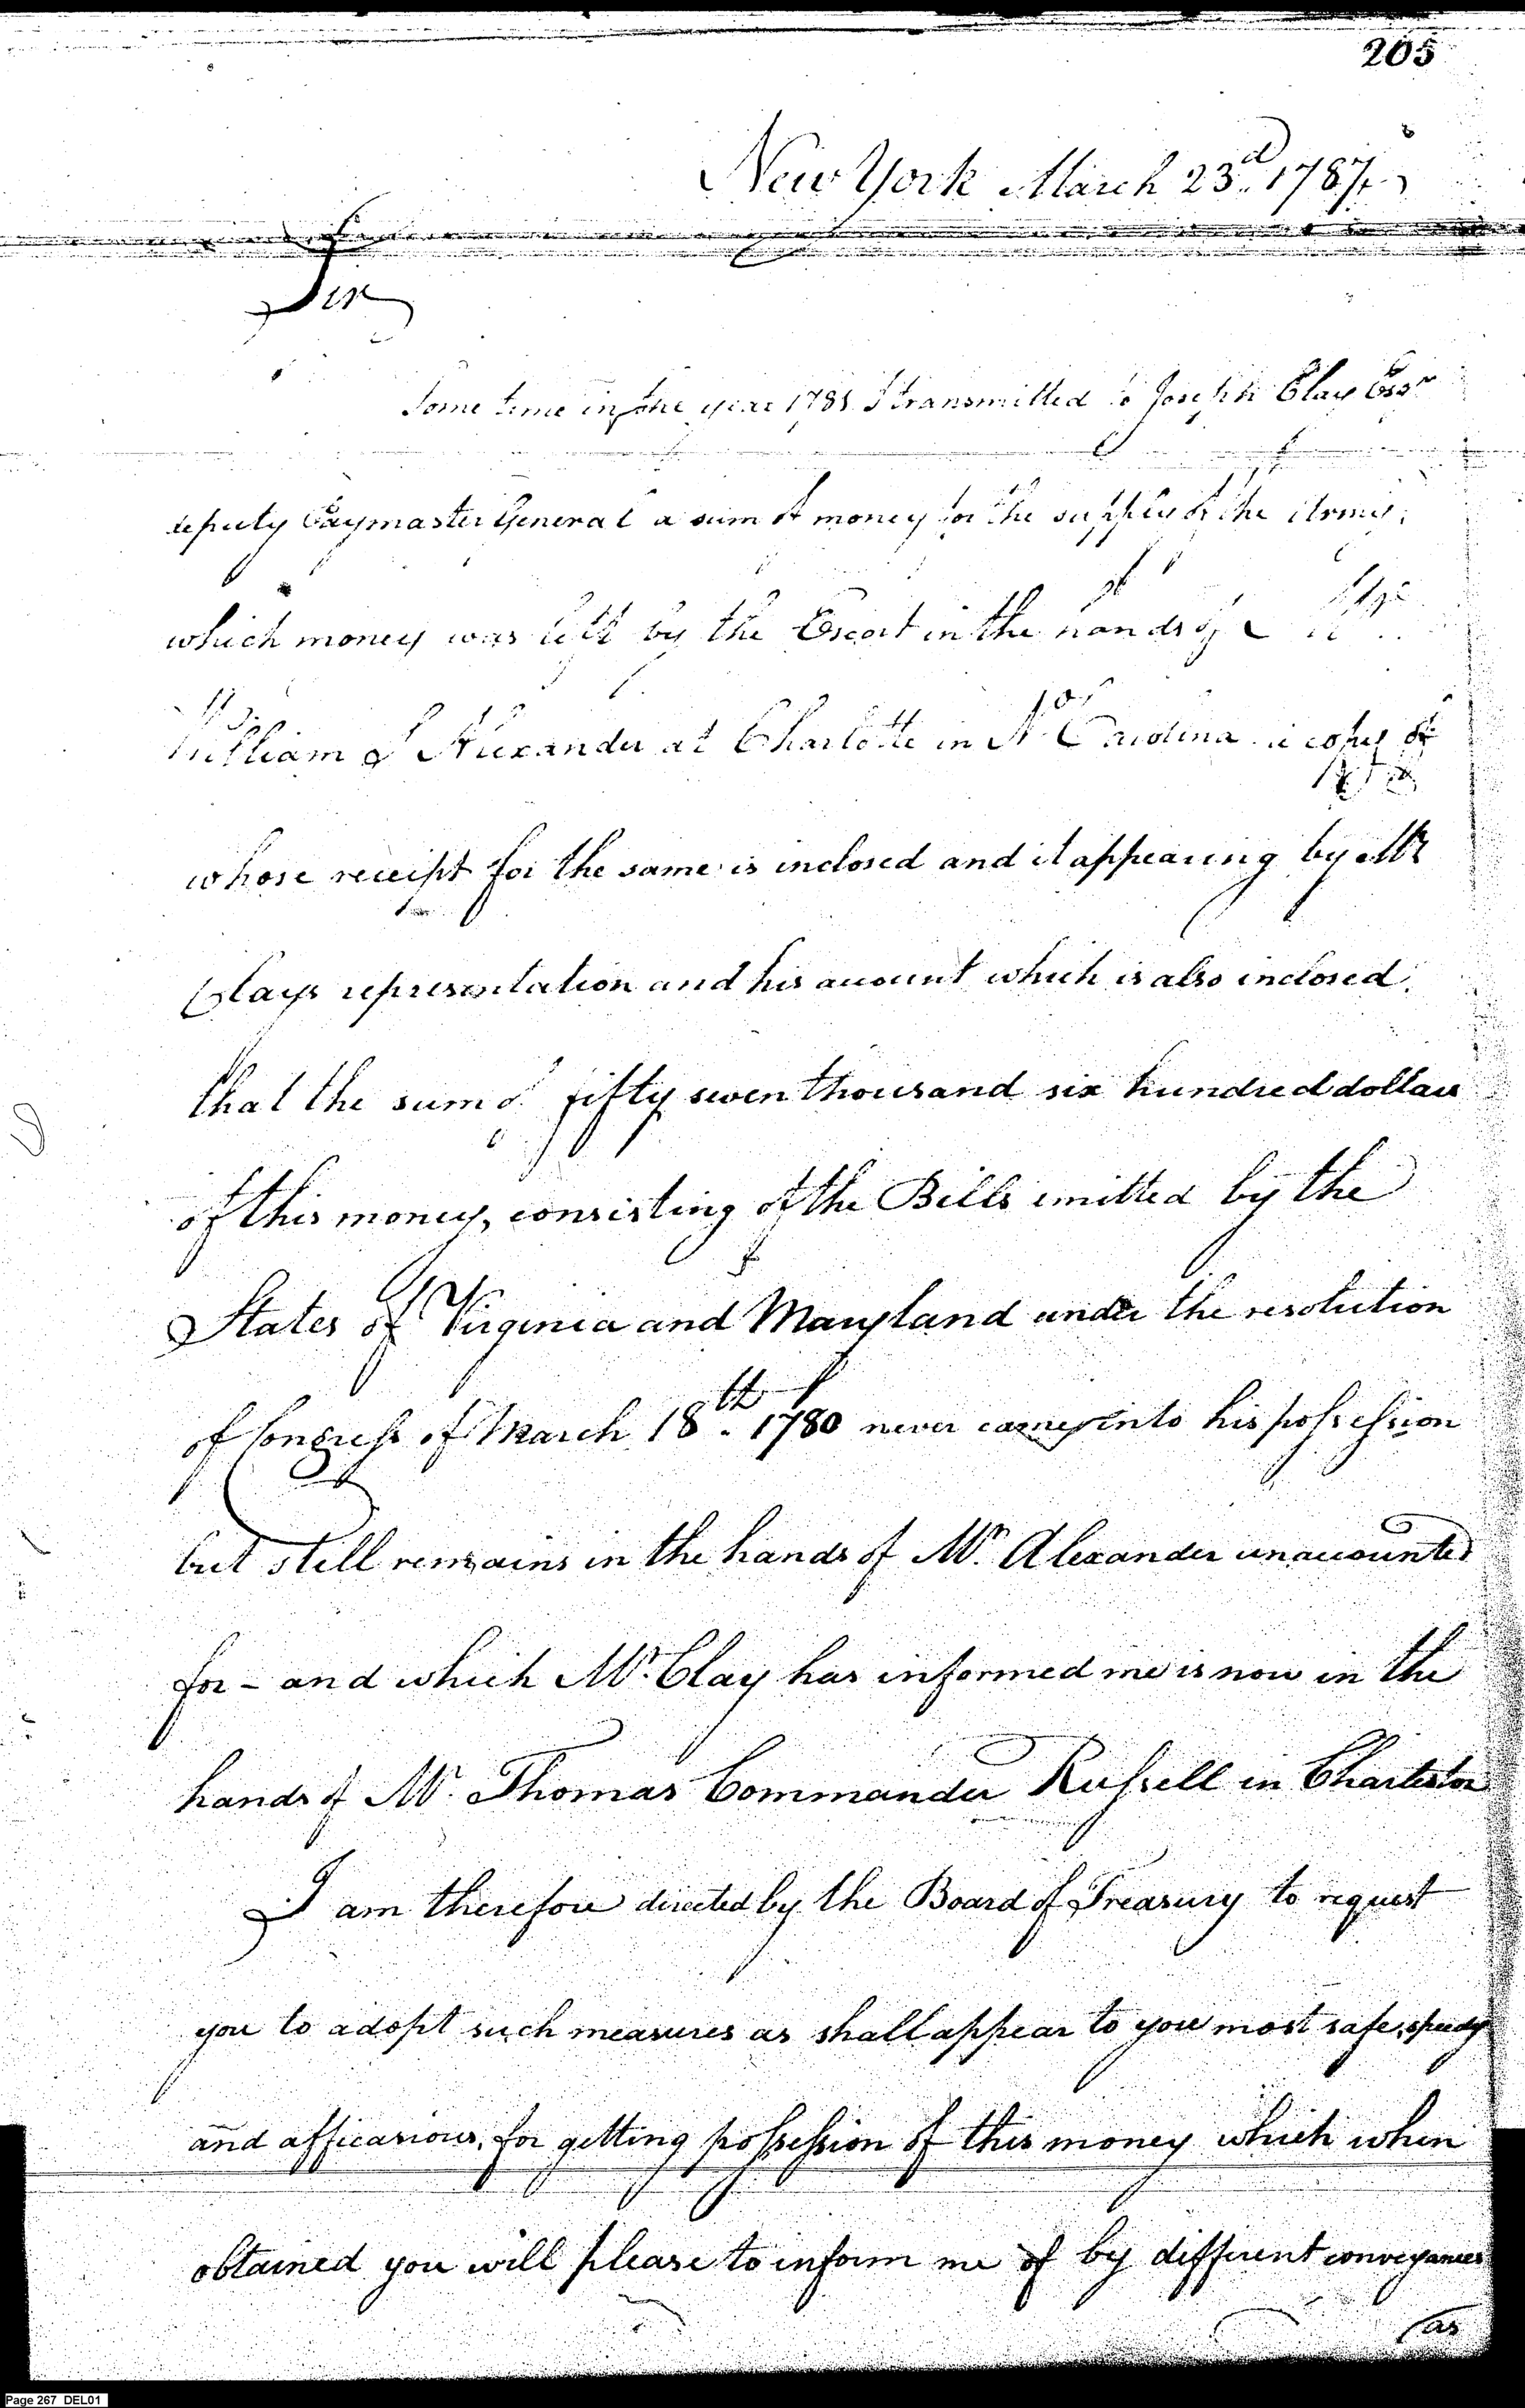 205
New York March 23d. 1787
Sir
Some time in the year 1781 I transmitted to Joseph Clay Esqr
deputy Paymaster General a sum of money for the supply of the Army,
which money was left by the Escort in the hands of
William Alexander at Charlotte in No Carolina a copy of
whose receipt for the same is inclosed and it appearing by Mr
Clays representation and his account which is also inclosed
that the sum of fifty seven thousand six hundred dollars
of this money, consisting of the Bills emitted by the
States of Virginia and Maryland under the resolution
of Congress of March 18th. 1780 never came into his possession
but still remains in the hands of Mr. Alexander unaccounted
for - and which Mr. Clay has informed me is now in the
hands of Mr. Thomas Commander Russell in Charleston
I am therefore directed by the Board of Treasury to request
you to adopt such measures as shall appear to you most safe, speedy
and afficasious, for getting possession of this money which when
obtained you will please to inform me of by different conveyances
as
Page 267 DEL01